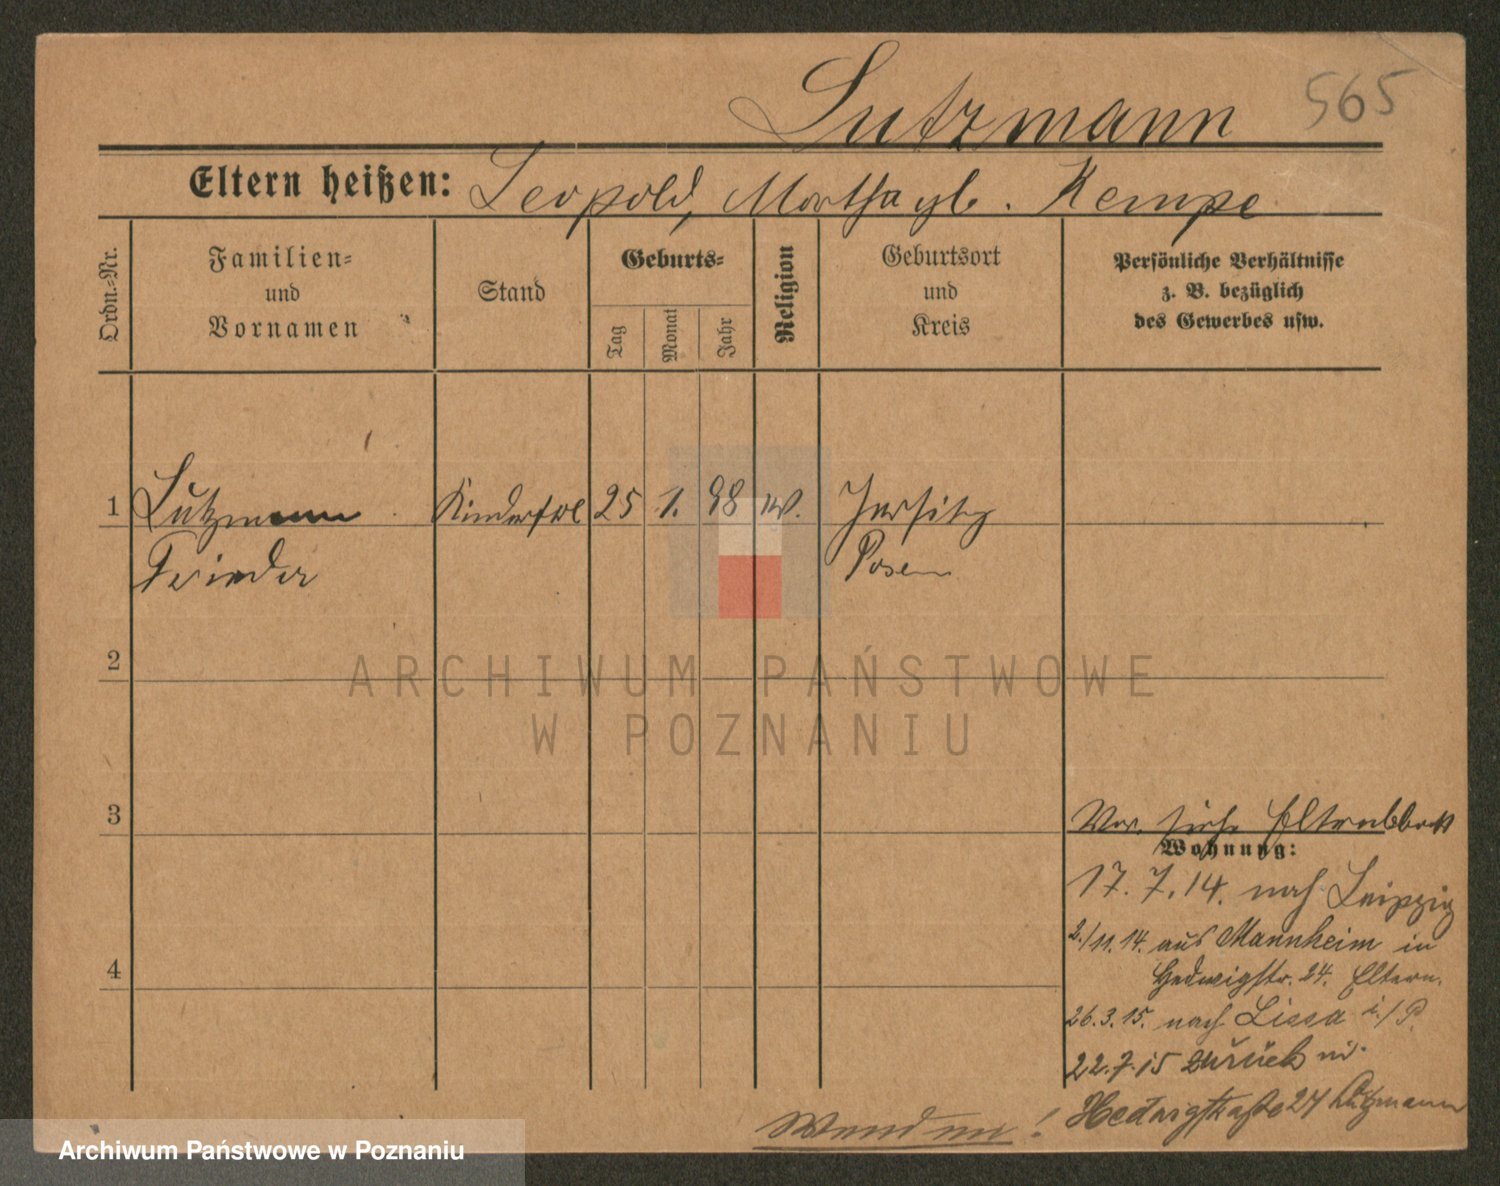 Lutzmann 565
Eltern heißen: Leopold, Martha gb. Kempe
Ordn.-Nr.
Familien-
und
Vornamen
Stand
Geburts-
Tag
Monat
Jahr
Religion
Geburtsort
und
Kreis
Persönliche Verhältnisse
z. B. bezüglich
des Gewerbes usw.
1 Lutzmann Kinderfrl 25 1. 98 Jersitz
Posen
2
ARCHIWUM PAŃSTWOWE
W POZNANIU
3
Vor. siehe Elternblatt
Wohnung:
17. 7. 14. nach Leipzig
2./11. 14. aus Mannheim in
4
Hedwigstr. 24. Eltern.
26. 3. 15. nach Lissa i./P.
22. 7. 15 zurück
Hedwigstraße 24 Lutzmann
Wenden!
Archiwum Państwowe w Poznaniu